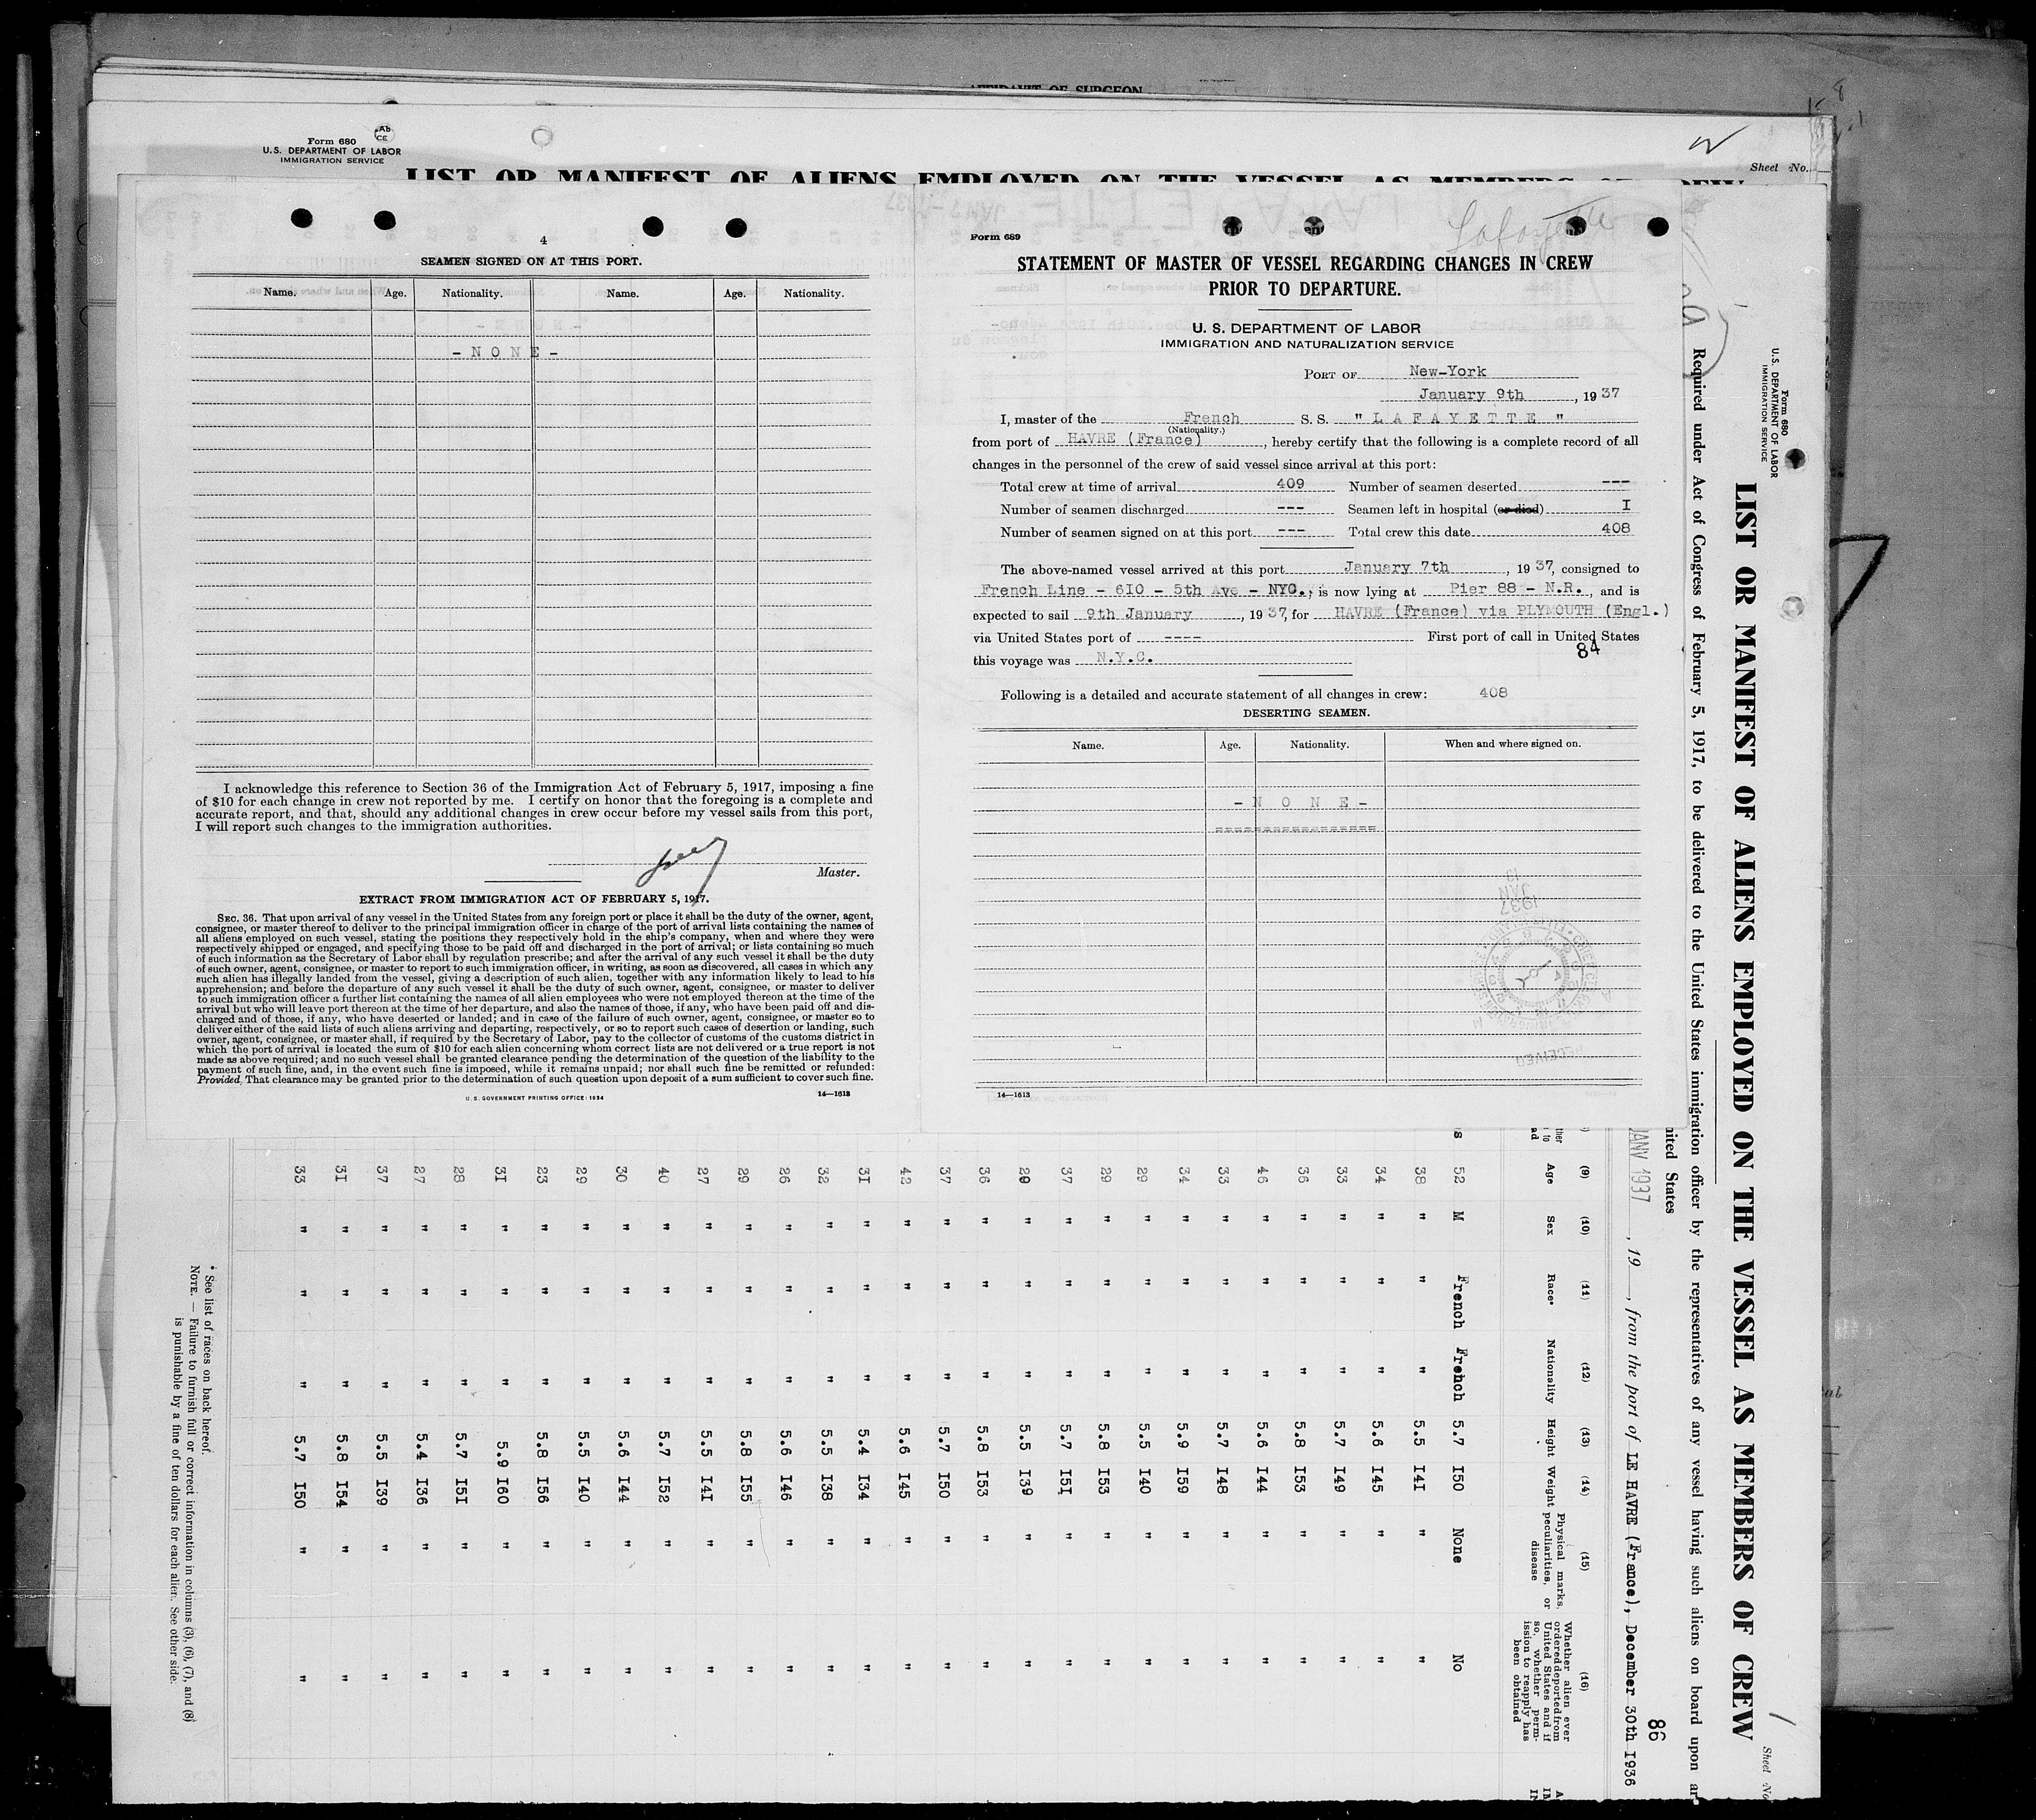 AFFIDAVIT OF SURGEON
Form 680
U.S. DEPARTMENT OF LABOR
IMMIGRATION SERVICE
Sheet No.
LIST OR MANIFEST OF ALIENS EMPLOYED ON THE VESSEL AS MEMBERS OF CREW
4
SEAMEN SIGNED ON AT THIS PORT.
Name. Age. Nationality. Name. Age. Nationality.
- N O N E -
I acknowledge this reference to Section 36 of the Immigration Act of February 5, 1917, imposing a fine
of $10 for each change in crew not reported by me. I certify on honor that the foregoing is a complete and
accurate report, and that, should any additional changes in crew occur before my vessel sails from this port,
I will report such changes to the immigration authorities.
Master.
EXTRACT FROM IMMIGRATION ACT OF FEBRUARY 5, 1917.
SEC. 36. That upon arrival of any vessel in the United States from any foreign port or place it shall be the duty of the owner, agent,
consignee, or master thereof to deliver to the principal immigration officer in charge of the port of arrival lists containing the names of
all aliens employed on such vessel, stating the positions they respectively hold in the ship's company, when and where they were
respectively shipped or engaged, and specifying those to be paid off and discharged in the port of arrival; or lists containing so much
of such information as the Secretary of Labor shall by regulation prescribe; and after the arrival of any such vessel it shall be the duty
of such owner, agent, consignee, or master to report to such immigration officer, in writing, as soon as discovered, all cases in which any
such alien has illegally landed from the vessel, giving a description of such alien, together with any information likely to lead to his
apprehension; and before the departure of any such vessel it shall be the duty of such owner, agent, consignee, or master to deliver
to such immigration officer a further list containing the names of all alien employees who were not employed thereon at the time of the
arrival but who will leave port thereon at the time of her departure, and also the names of those, if any, who have been paid off and dis-
charged and of those, if any, who have deserted or landed; and in case of the failure of such owner, agent, consignee, or master so to
deliver either of the said lists of such aliens arriving and departing, respectively, or so to report such cases of desertion or landing, such
owner, agent, consignee, or master shall, if required by the Secretary of Labor, pay to the collector of customs of the customs district in
which the port of arrival is located the sum of $10 for each alien concerning whom correct lists are not delivered or a true report is not
made as above required; and no such vessel shall be granted clearance pending the determination of the question of the liability to the
payment of such fine, and, in the event such fine is imposed, while it remains unpaid; nor shall such fine be remitted or refunded:
Provided, That clearance may be granted prior to the determination of such question upon deposit of a sum sufficient to cover such fine.
U. S. GOVERNMENT PRINTING OFFICE: 1934 14—1613
Form 689
Lafayette
STATEMENT OF MASTER OF VESSEL REGARDING CHANGES IN CREW
PRIOR TO DEPARTURE.
U. S. DEPARTMENT OF LABOR
IMMIGRATION AND NATURALIZATION SERVICE
PORT OF New-York
January 9th, 1937
I, master of the French S. S. " L A F A Y E T T E "
(Nationality.)
from port of HAVRE (France), hereby certify that the following is a complete record of all
changes in the personnel of the crew of said vessel since arrival at this port:
Total crew at time of arrival 409 Number of seamen deserted ---
Number of seamen discharged --- Seamen left in hospital (or died) I
Number of seamen signed on at this port --- Total crew this date 408
The above-named vessel arrived at this port January 7th, 1937, consigned to
French Line - 6I0 - 5th Ave - NYC., is now lying at Pier 88 - N.R., and is
expected to sail 9th January, 1937, for HAVRE (France) via PLYMOUTH (Engl.)
via United States port of ---- First port of call in United States
84
this voyage was N.Y.C.
Following is a detailed and accurate statement of all changes in crew: 408
DESERTING SEAMEN.
Name. Age. Nationality. When and where signed on.
- N O N E -
================
RECEIVED
14—1613
Form 680
U.S. DEPARTMENT OF LABOR
IMMIGRATION SERVICE
Sheet No
LIST OR MANIFEST OF ALIENS EMPLOYED ON THE VESSEL AS MEMBERS OF CREW
Required under Act of Congress of February 5, 1917, to be delivered to the United States immigration officer by the representatives of any vessel having such aliens on board upon ar
nited States
86
JANV 1937, 19 , from the port of LE HAVRE (France), December 30th I936
(9) (10) (11) (12) (13) (14) (15) (16)
Age Sex Race* Nationality Height Weight Physical marks, peculiarities, or disease Whether alien ever ordered deported from United States and if so, whether permission to reapply has been obtained
52 M French French 5.7 I50 None No
38 " " " 5.5 I4I " "
34 " " " 5.6 I45 " "
33 " " " 5.7 I49 " "
36 " " " 5.8 I53 " "
46 " " " 5.6 I44 " "
33 " " " 5.7 I48 " "
34 " " " 5.9 I59 " "
29 " " " 5.5 I40 " "
29 " " " 5.8 I53 " "
37 " " " 5.7 I5I " "
29 " " " 5.5 I39 " "
36 " " " 5.8 I53 " "
37 " " " 5.7 I50 " "
42 " " " 5.6 I45 " "
3I " " " 5.4 I34 " "
32 " " " 5.5 I38 " "
26 " " " 5.6 I46 " "
29 " " " 5.8 I55 " "
27 " " " 5.5 I4I " "
40 " " " 5.7 I52 " "
30 " " " 5.6 I44 " "
29 " " " 5.5 I40 " "
23 " " " 5.8 I56 " "
3I " " " 5.9 I60 " "
28 " " " 5.7 I5I " "
27 " " " 5.4 I36 " "
37 " " " 5.5 I39 " "
3I " " " 5.8 I54 " "
33 " " " 5.7 I50 " "
* See list of races on back hereof.
NOTE. — Failure to furnish full or correct information in columns (3), (6), (7), and (8)
is punishable by a fine of ten dollars for each alien. See other side.